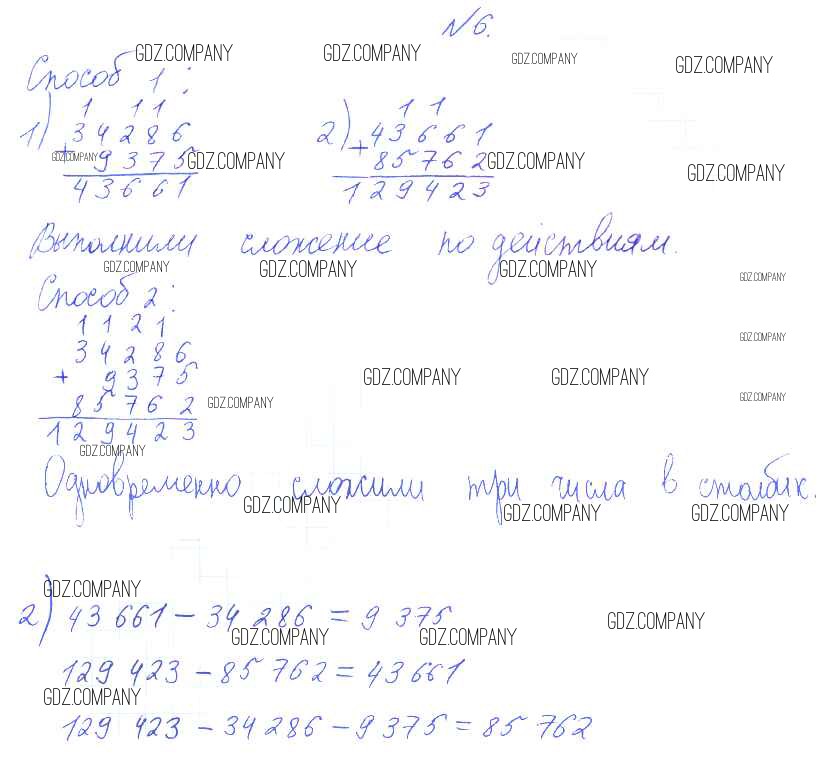 №6.
GDZ.COMPANY GDZ.COMPANY GDZ.COMPANY GDZ.COMPANY
Способ 1:
1 11
1) 34286
+ 9375
43661
11
2) 43661
+ 85762
129423
GDZ.COMPANY GDZ.COMPANY GDZ.COMPANY GDZ.COMPANY
Выполнили сложение по действиям.
GDZ.COMPANY GDZ.COMPANY GDZ.COMPANY GDZ.COMPANY
Способ 2:
1121
34286
+ 9375
85762
129423
GDZ.COMPANY
GDZ.COMPANY GDZ.COMPANY
GDZ.COMPANY GDZ.COMPANY
GDZ.COMPANY
Одновременно сложили три числа в столбик.
GDZ.COMPANY GDZ.COMPANY GDZ.COMPANY
GDZ.COMPANY
2) 43 661 - 34 286 = 9 375
GDZ.COMPANY GDZ.COMPANY GDZ.COMPANY
129 423 - 85 762 = 43 661
GDZ.COMPANY
129 423 - 34 286 - 9 375 = 85 762